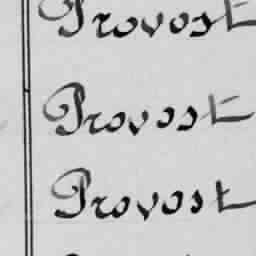 Provost
Provost
Provost